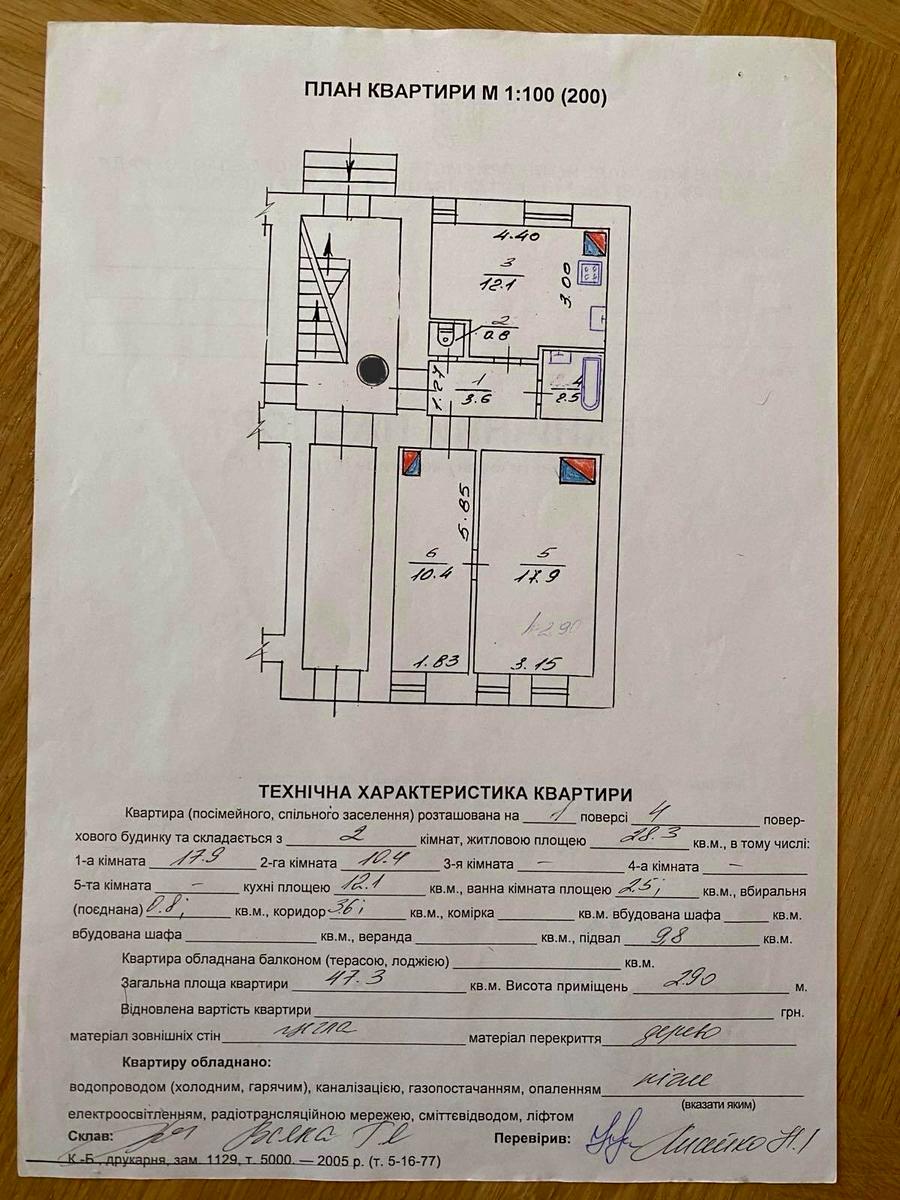 ПЛАН КВАРТИРИ М 1:100 (200)
4.40
3
12.1
3.00
2
0.8
1.27
1
3.6
4
2.5
5.85
6
10.4
5
17.9
h-2.90
1.83
3.15
ТЕХНІЧНА ХАРАКТЕРИСТИКА КВАРТИРИ
Квартира (посімейного, спільного заселення) розташована на 1 поверсі 4 повер-
хового будинку та складається з 2 кімнат, житловою площею 28.3 кв.м., в тому числі:
1-а кімната 17.9 2-га кімната 10.4 3-я кімната – 4-а кімната –
5-та кімната – кухні площею 12.1 кв.м., ванна кімната площею 2.5; кв.м., вбиральня
(поєднана) 0.8; кв.м., коридор 3.6; кв.м., комірка кв.м. вбудована шафа кв.м.
вбудована шафа кв.м., веранда кв.м., підвал 9,8 кв.м.
Квартира обладнана балконом (терасою, лоджією) кв.м.
Загальна площа квартири 47.3 кв.м. Висота приміщень 2.90 м.
Відновлена вартість квартири грн.
матеріал зовнішніх стін цегла матеріал перекриття дерево
Квартиру обладнано:
водопроводом (холодним, гарячим), каналізацією, газопостачанням, опаленням пічне
(вказати яким)
електроосвітленням, радіотрансляційною мережею, сміттєвідводом, ліфтом
Склав: Перевірив:
К.-Б., друкарня, зам. 1129, т. 5000. — 2005 р. (т. 5-16-77)